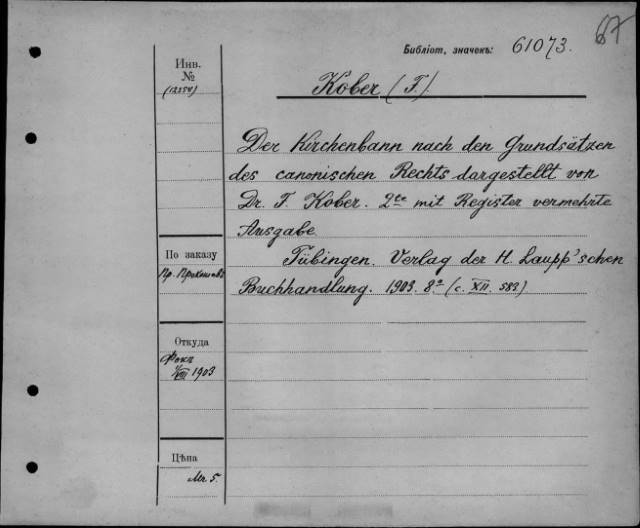 67
Библіот. значекъ: 61073.
Инв.
№
(12254)
Kober (F.)
Der Kirchenbann nach den Grundsätzen
des canonischen Rechts dargestellt von
Dr. F. Kober. 2te mit Register vermehrte
Ausgabe.
Tübingen. Verlag der H. Laupp'schen
Buchhandlung. 1903. 8° (с. XII. 583)
По заказу
Пр.
Откуда
Фокъ
VIII 1903
Цѣна
Mr. 5.